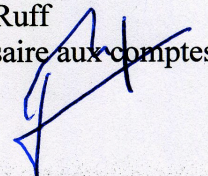 Ruff
saire aux comptes